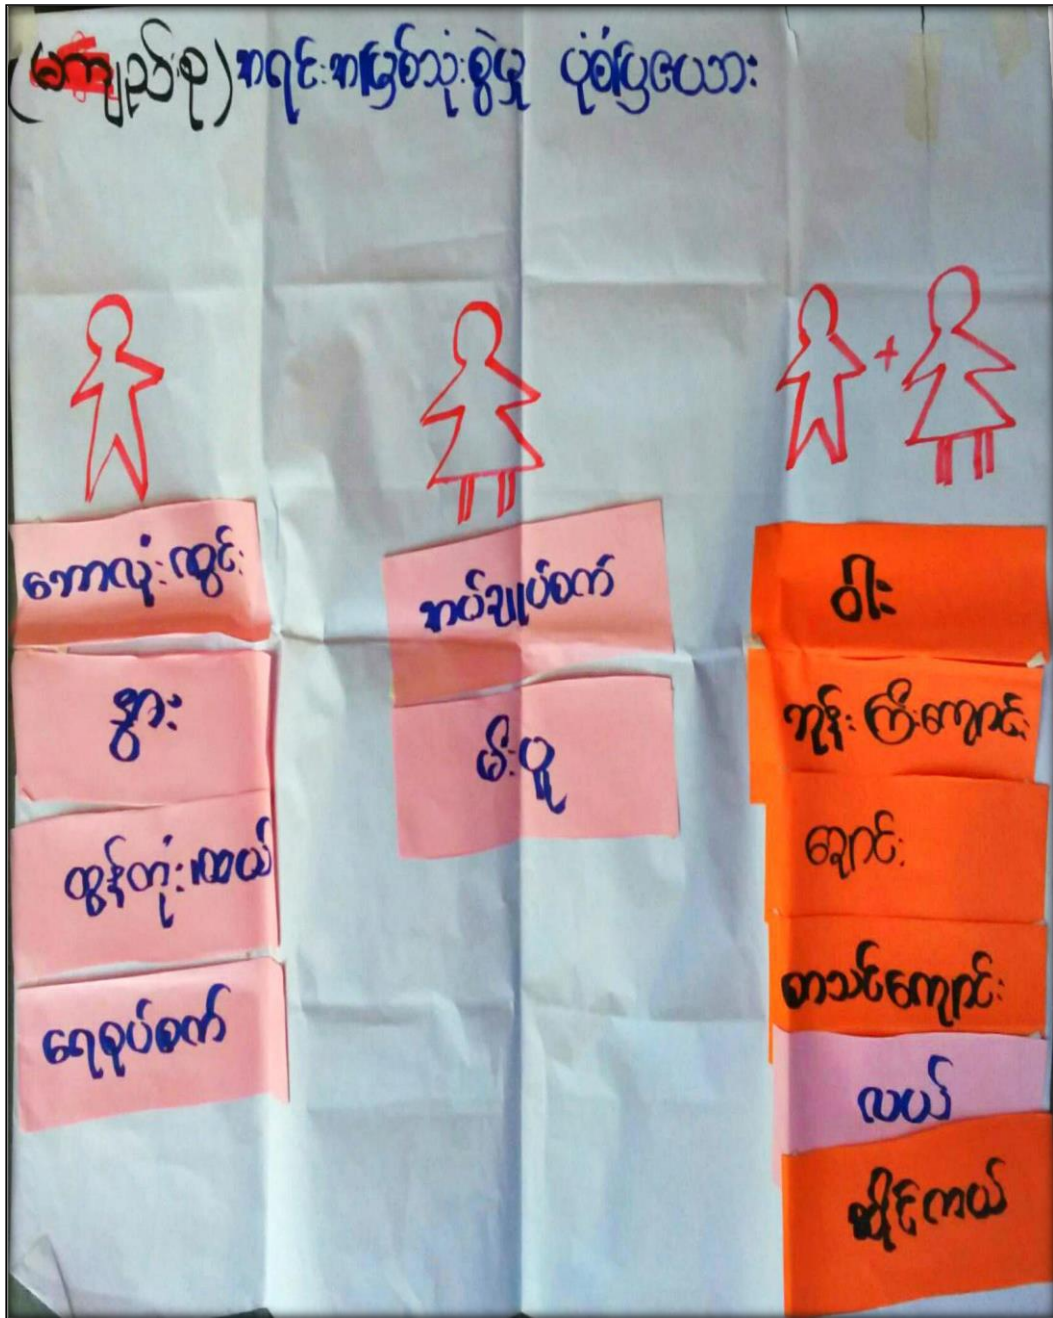 ကျည်းစု) အရင်းအမြစ်သုံးစွဲမှု ပုံစံပြဇယား
ဘောလုံးကွင်း
နွား
ထွန်တုံး၊ ထယ်
ရေစုပ်စက်
အပ်ချုပ်စက်
မီးပူ
ဝါး
ဘုန်းကြီးကျောင်း
ချောင်း
စာသင်ကျောင်း
လယ်
ဆိုင်ကယ်